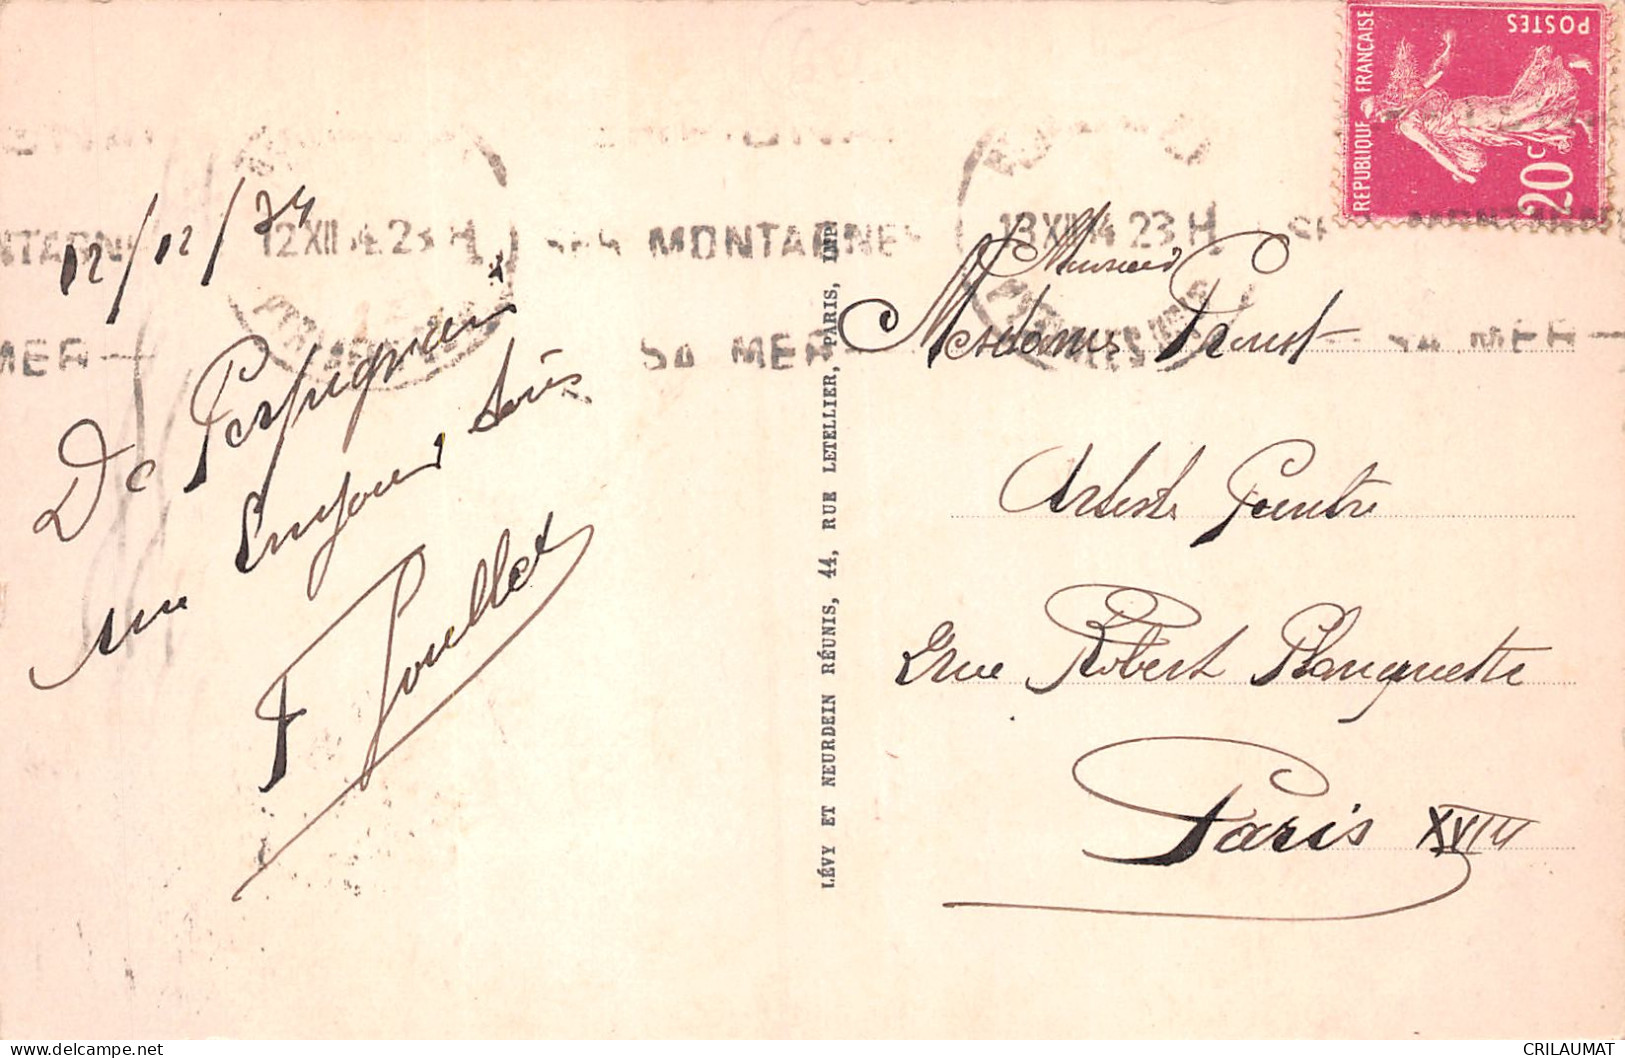 12/12/34
De Perpignan
un bonjour
F Poullet
12 XII 34 23 H
SES MONTAGNES
SA MER
13 XII 34 23 H
SES MONTAGNES
SA MER
NTAGNE
MER
LÉVY ET NEURDEIN RÉUNIS, 44, RUE LETELLIER, PARIS, IMP
RÉPUBLIQUE FRANÇAISE
POSTES
20 C
Monsieur
Madame
Artiste Peintre
2 rue Robert Planquette
Paris XVIII
CRILAUMAT